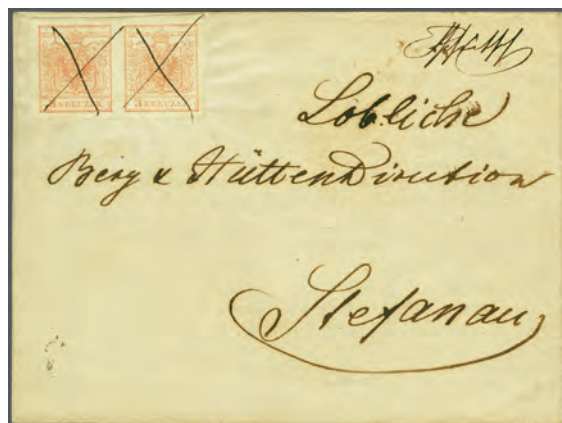 3 KREUZER 3 KREUZER
Lobliche
Berg & Hütten Direction
Stefanau